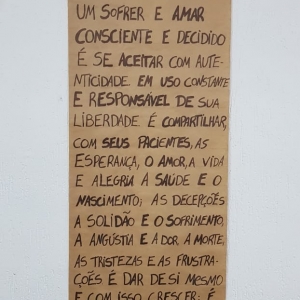 UM SOFRER E AMAR
CONSCIENTE E DECIDIDO
É SE ACEITAR COM AUTE-
NTICIDADE EM USO CONSTANTE
E RESPONSÁVEL DE SUA
LIBERDADE É COMPARTILHAR,
COM SEUS PACIENTES, AS
ESPERANÇA, O AMOR, A VIDA
E ALEGRIA A SAÚDE E O
NASCIMENTO; AS DECEPÇÕES
A SOLIDÃO E O SOFRIMENTO,
A ANGÚSTIA E A DOR A MORTE,
AS TRISTEZAS E AS FRUSTRA-
ÇÕES É DAR DE SI MESMO
E COM ISSO CRESCER; É